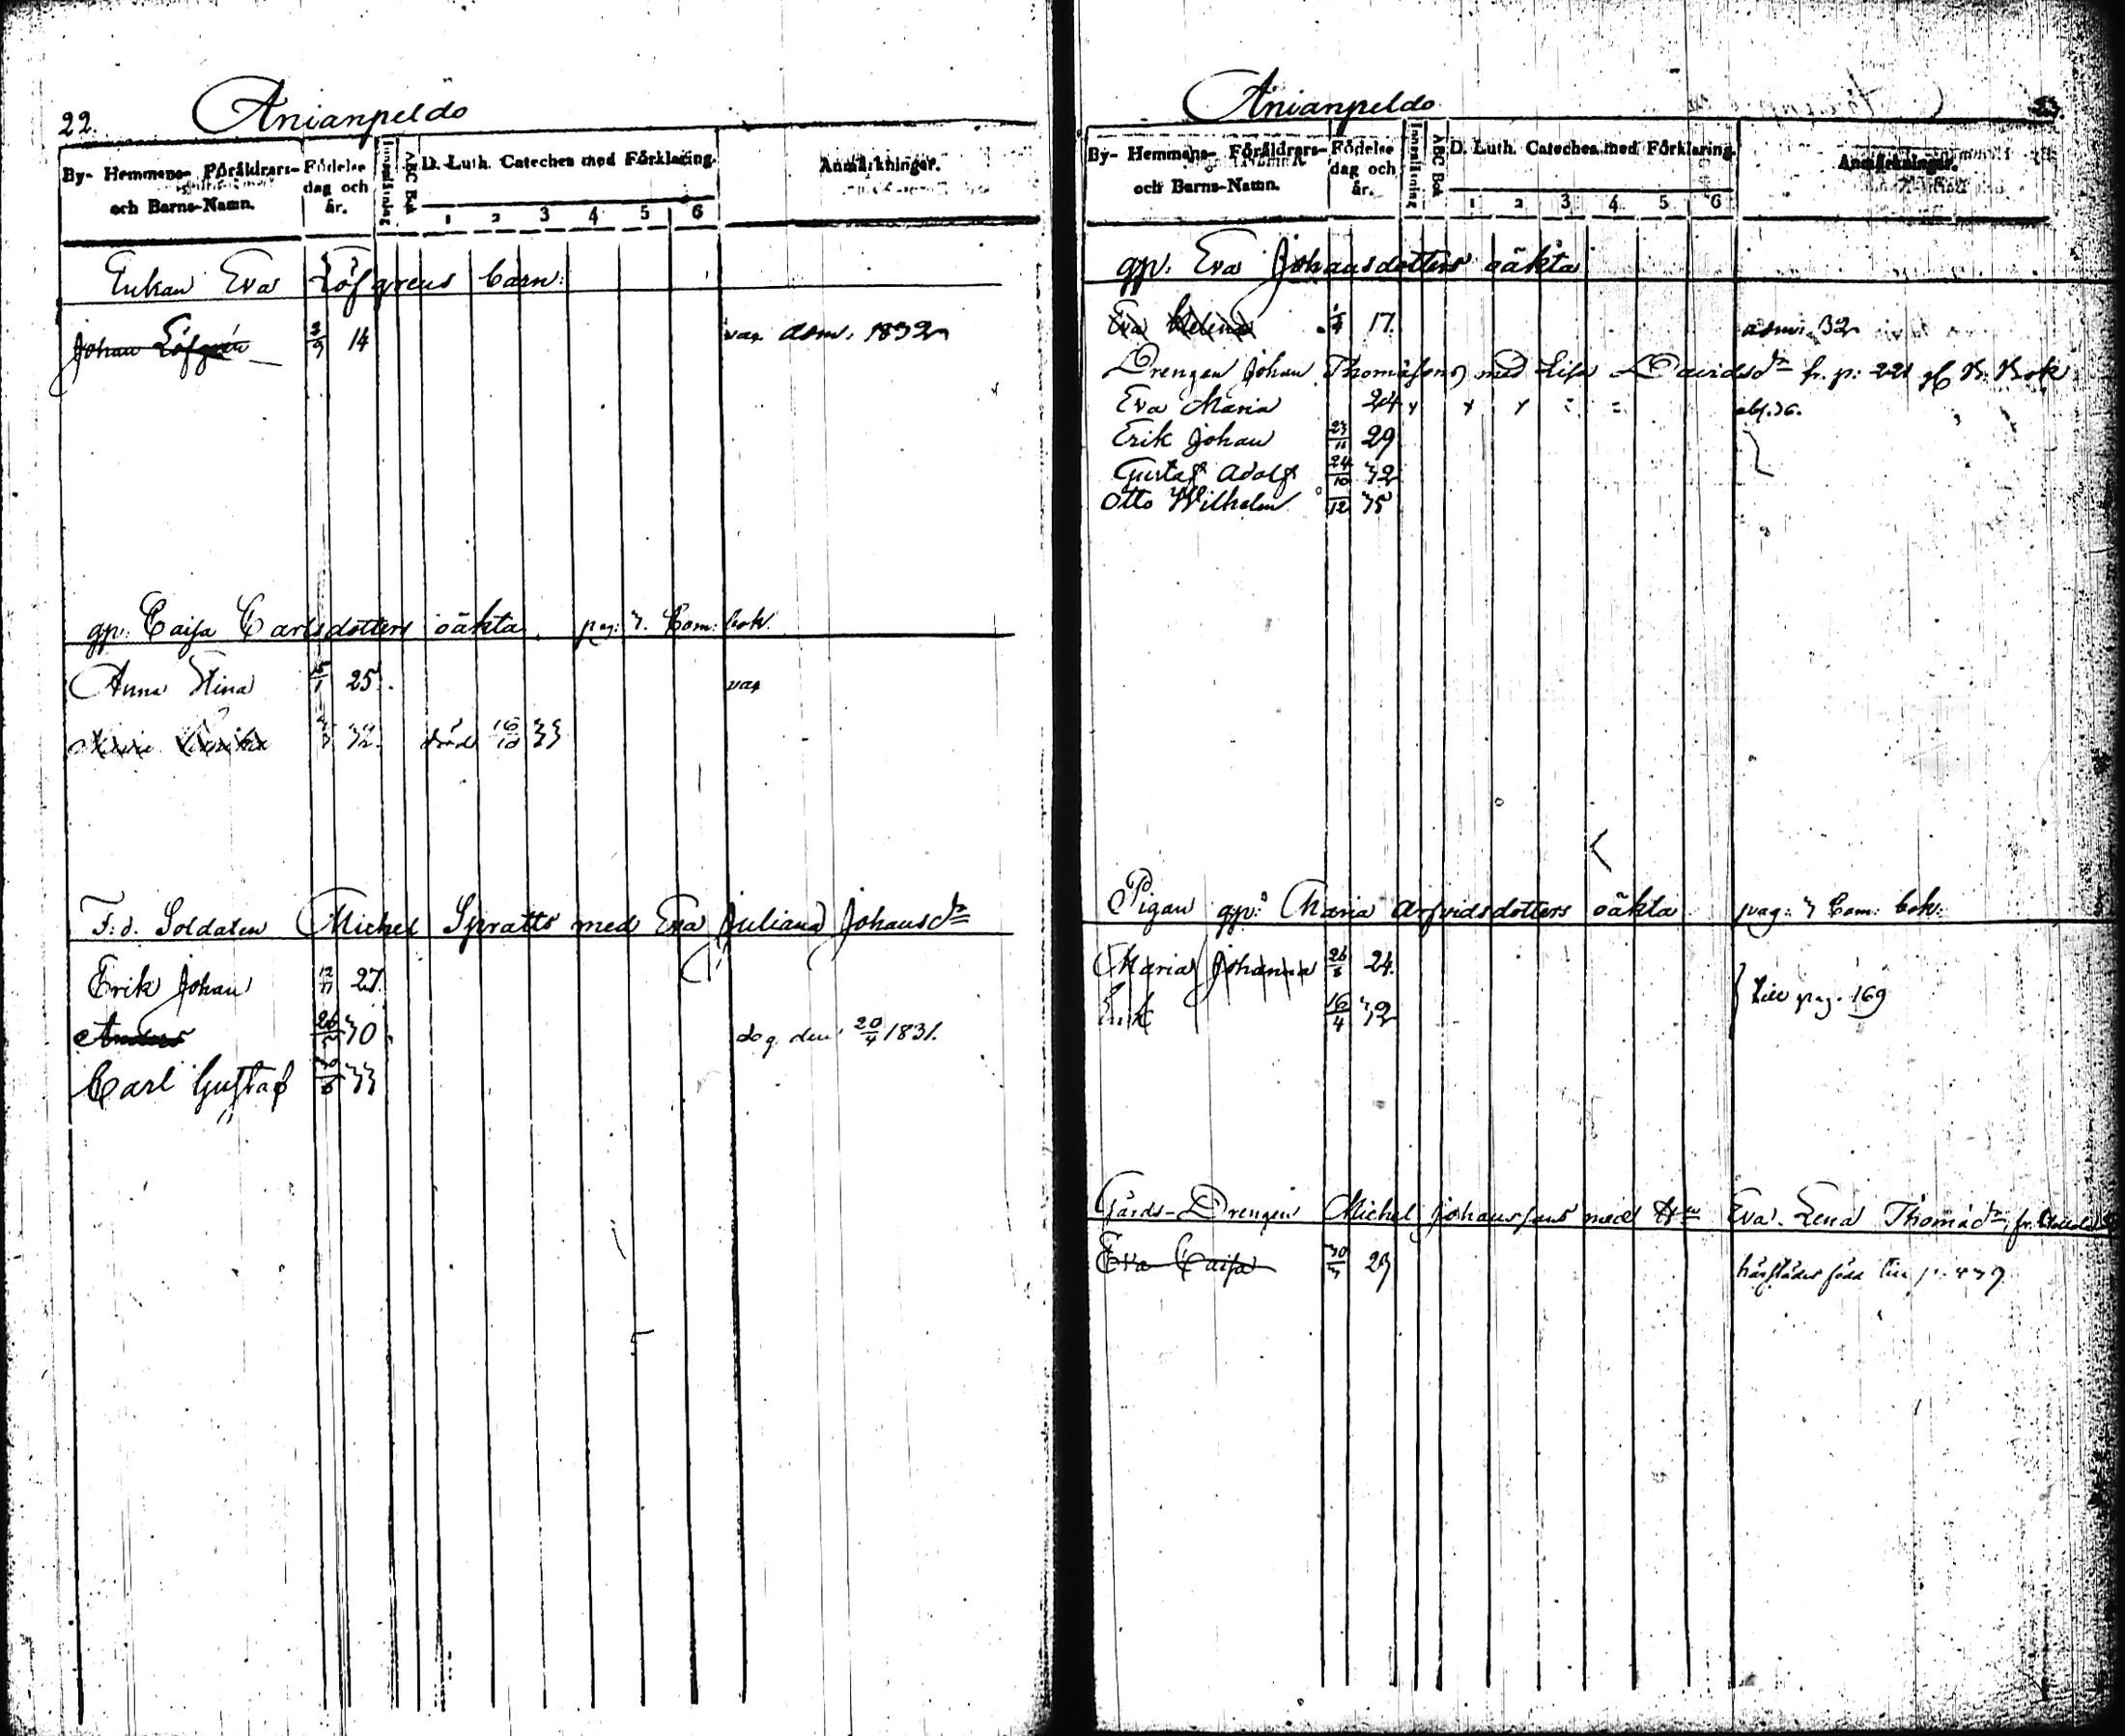 22.
Anianpeldo
By- Hemmans- Föräldrars- och Barns-Namn.
Födelse dag och år.
Innanläsning
ABC Bok
D. Luth. Cateches med Förklaring.
1 2 3 4 5 6
Anmärkningar.
Enkan Eva Löfgrens barn:
Johan Löfgrén 3/9 14 vac. adm. 1832
gp. Caisa Carlsdotters oäkta. pag: 7. Com: bok.
Anna Stina 15/1 25. vac
32. död 16/10 33
F: d. Soldaten Michel Spratts med Eva Juliana Johansdr
Erik Johan 12/11 27.
Anders 26/5 30 dog den 20/4 1831.
Carl Gustaf 30/6 33
23.
Anianpeldo
By- Hemmans- Föräldrars- och Barns-Namn.
Födelse dag och år.
Innanläsning
ABC Bok
D. Luth. Cateches med Förklaring.
1 2 3 4 5 6
Anmärkningar.
gp. Eva Johansdotters oäkta
Eva Helena 17. adm. 32
Drengen Johan Thomasons med Lisa Davidsdr fr. p: 221 Bok
Eva Maria 24 abs. 36.
Erik Johan 23/11 29
Gustaf Adolf 24/10 32
Otto Wilhelm 12 35
Pigan gp: Maria Arfvidsdotters oäkta pag: 7 Com: bok:
Maria Johanna 26/8 24.
Erik 16/4 32
till pag. 169
Gårds-Drengen Michel Johanssons med Hu Eva Lena Thomædr, fr.
Eva Caisa 30/3 29 härstädes född till p.